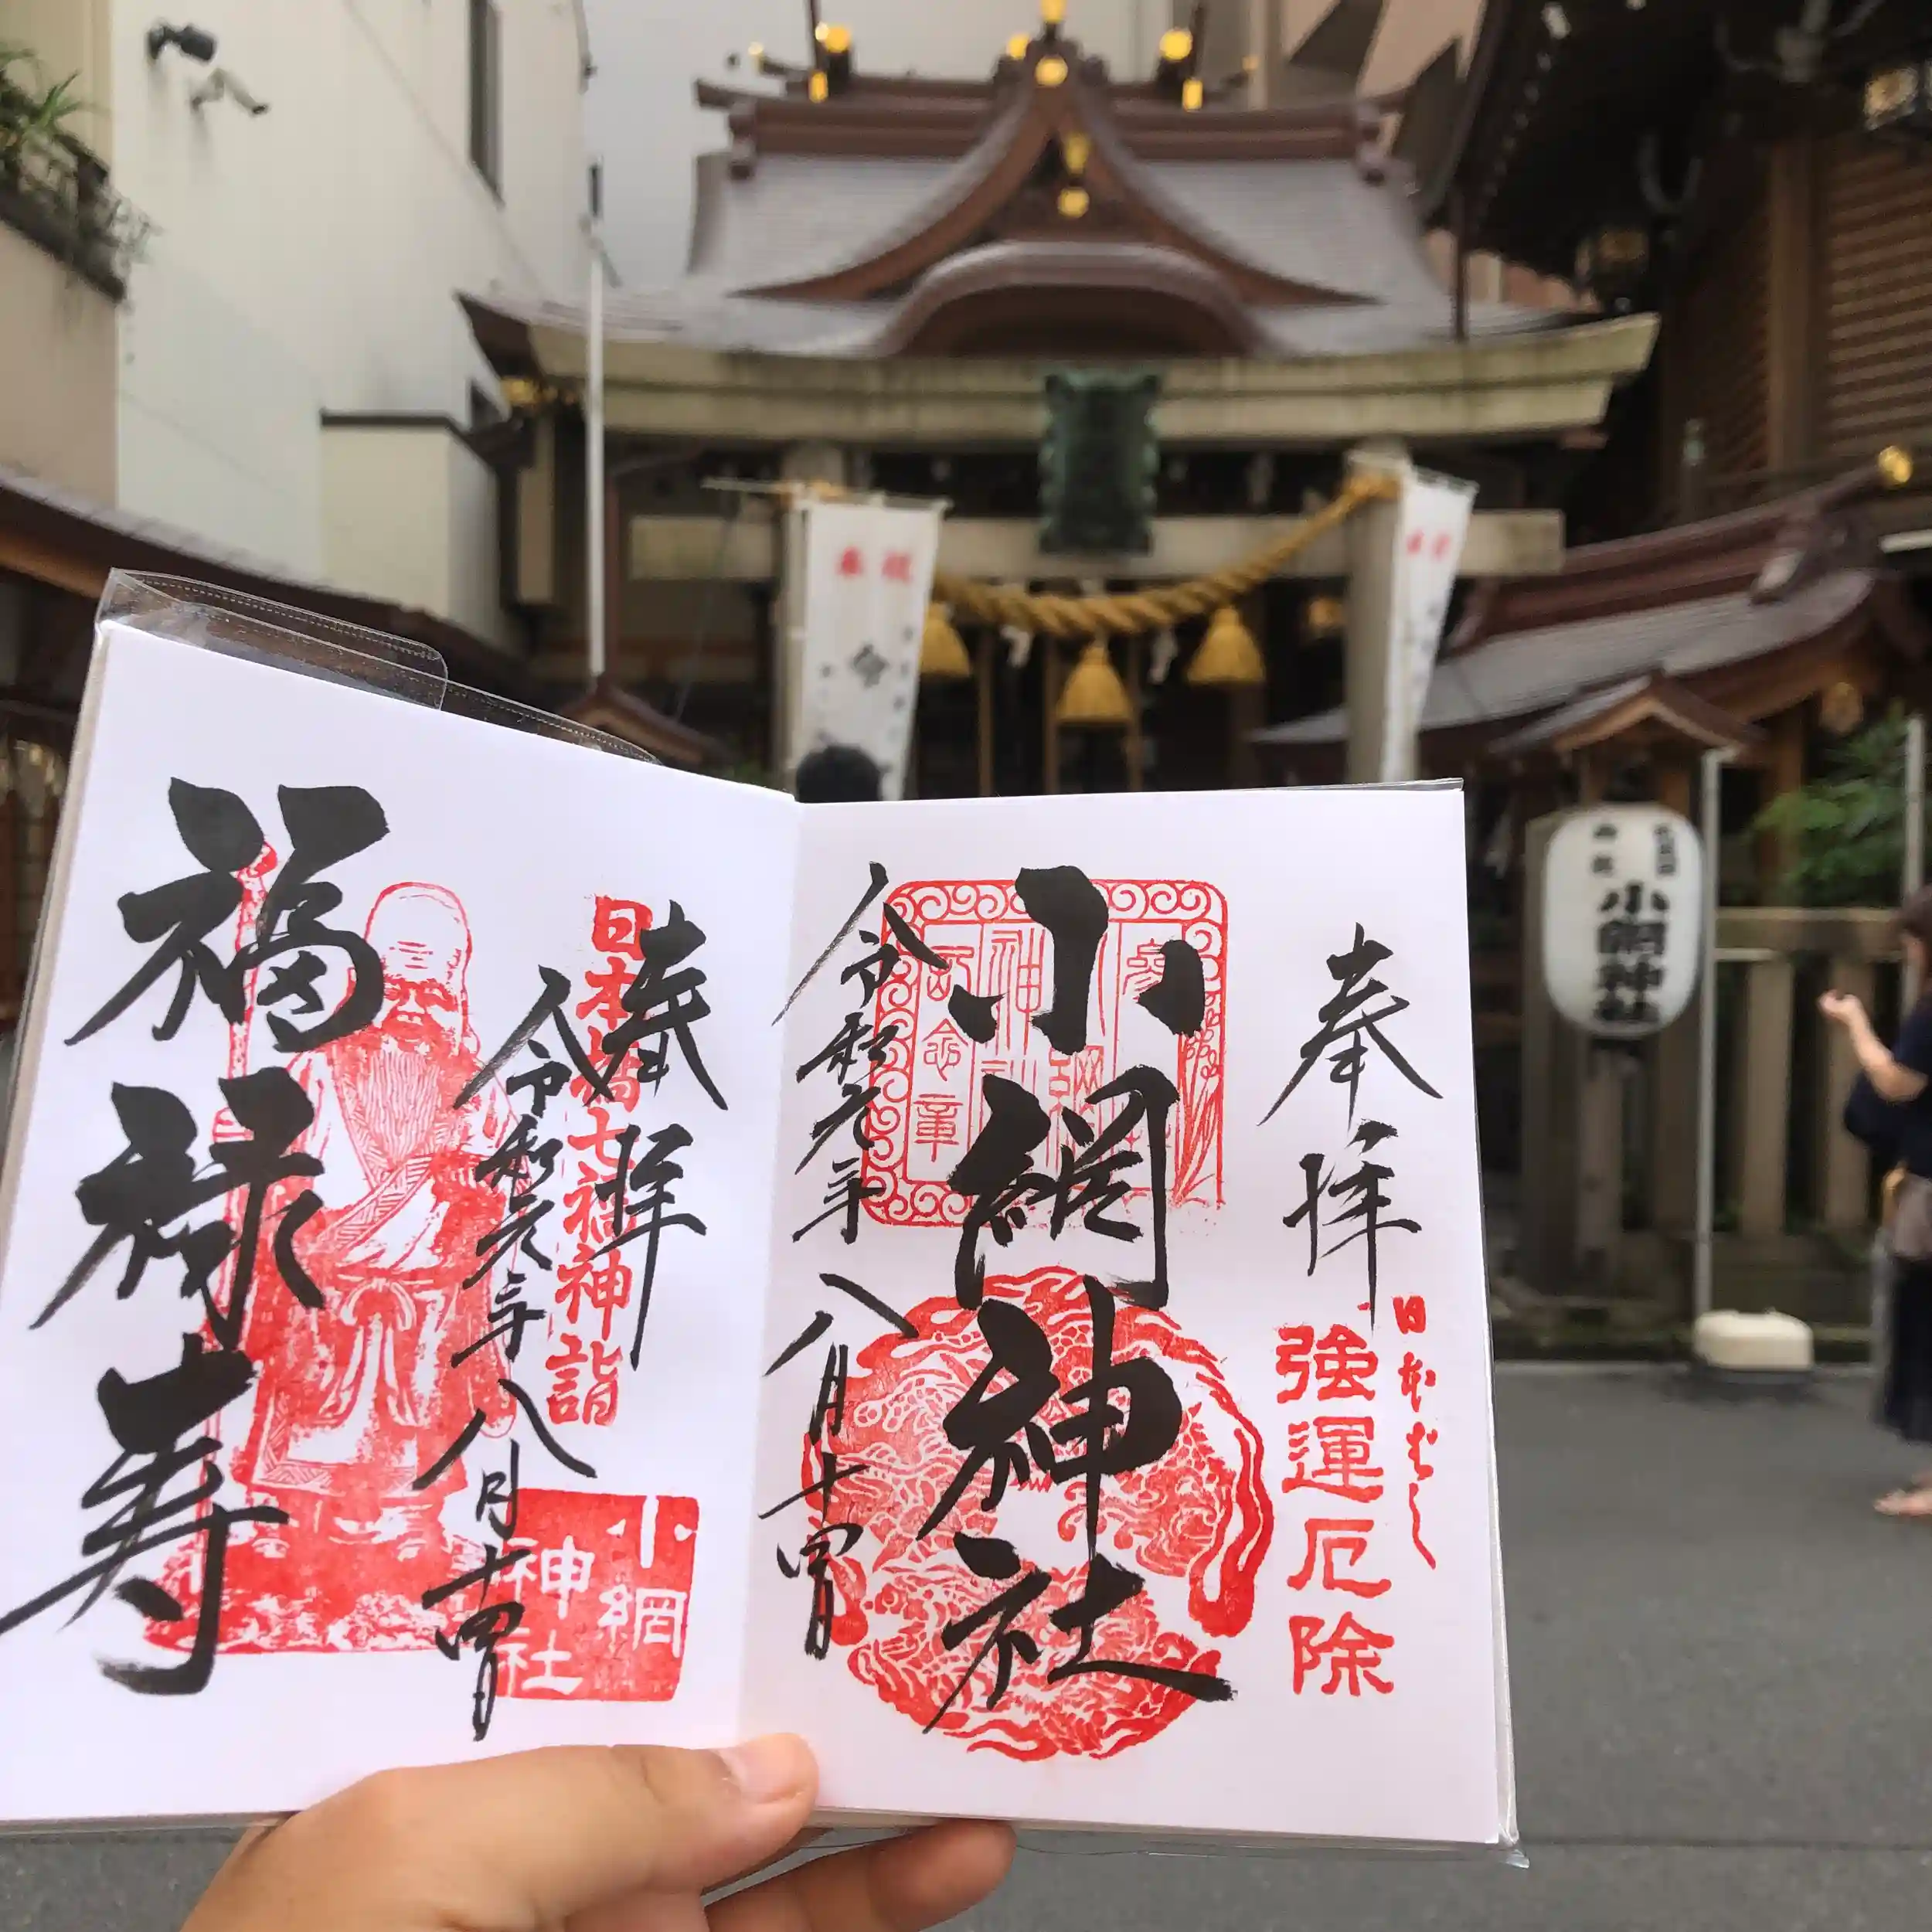 奉拝
日本ばし
強運厄除
小網神社
令和元年八月十四日
奉拝
日本橋七福神詣
令和元年八月十四日
福禄寿
小網
神社
小網神社